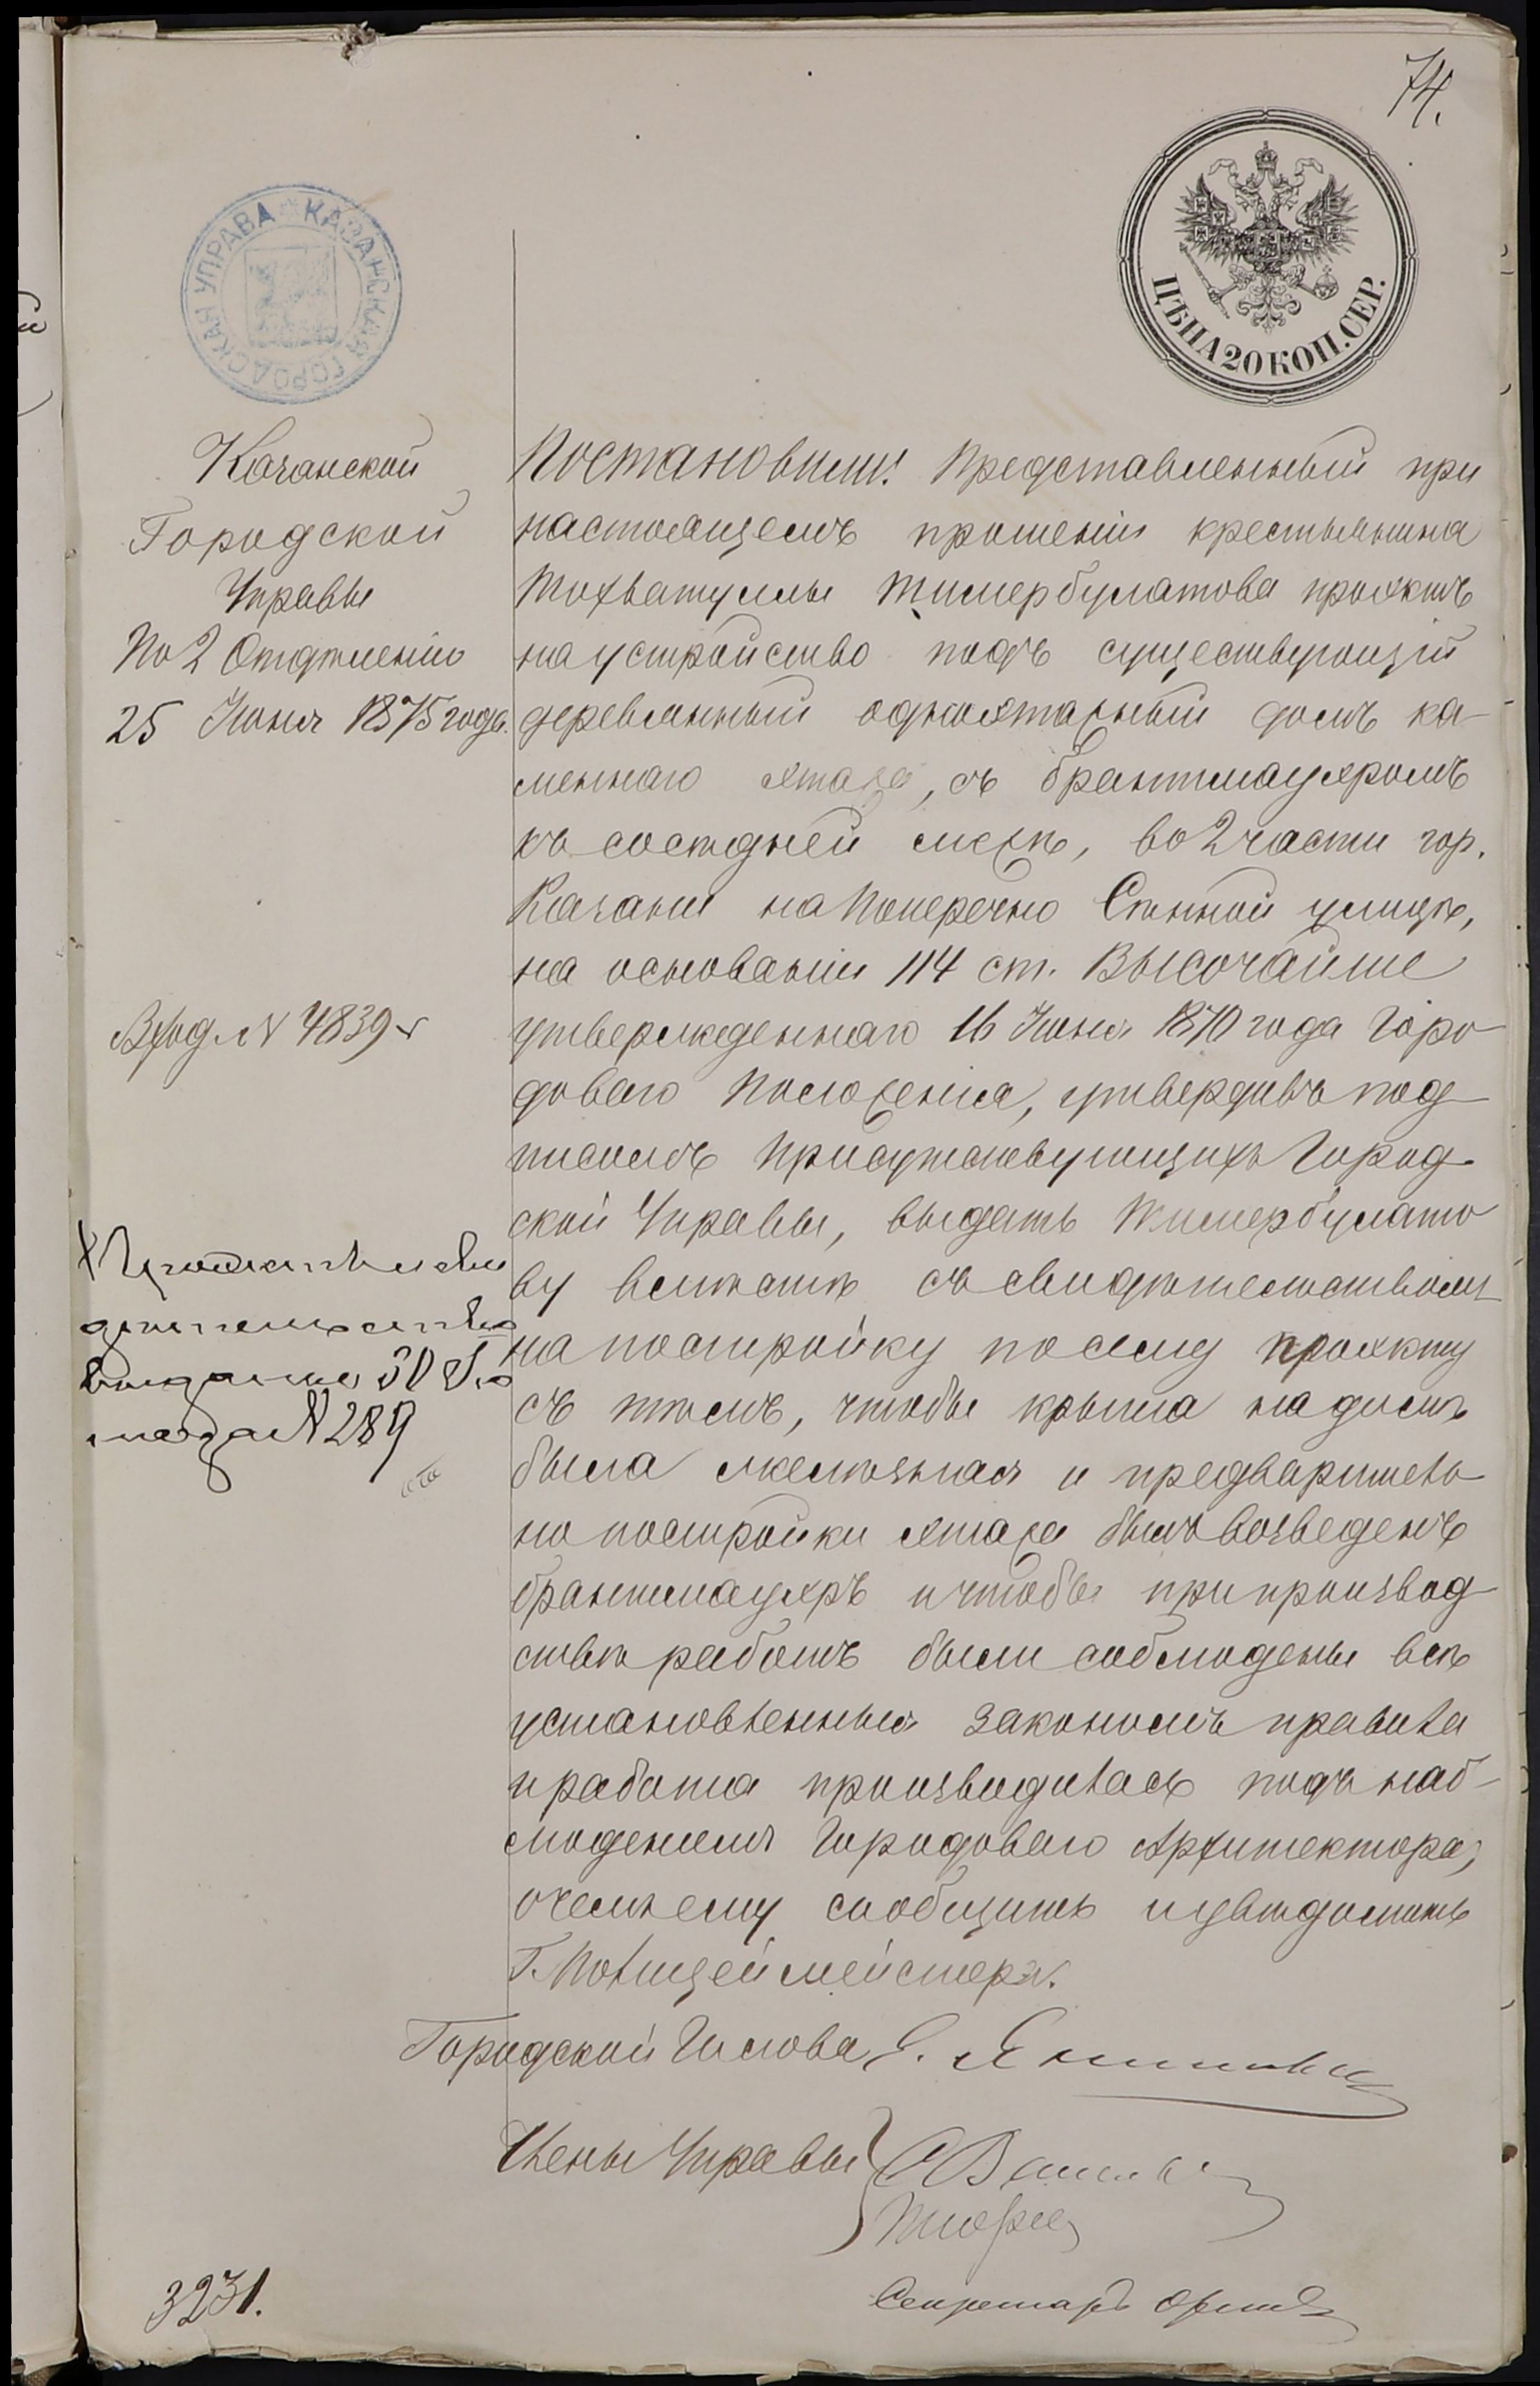 74.
КАЗАНСКАЯ ГОРОДСКАЯ УПРАВА
ЦѢНА 20 КОП. СЕР.
Казанской
Городской
Управы
По 2 Отдѣленію
25 Іюня 1875 года.
Вход. N 4839
Проэктъ и сви
дѣтельство
выданы 30 Ію
N 289
Постановили: Представленный при
настоящемъ прошеніи крестьянина
Тохватуллы Тимербулатова проэктъ
на устройство подъ существующій
деревянный одноэтажный домъ ка-
меннаго этажа, съ брантмауэромъ
къ сосѣдней межѣ, во 2 части гор.
Казани на Поперечно Сѣнной улицѣ,
на основаніи 114 ст. Высочайше
утвержденнаго 16 Іюня 1870 года Горо-
доваго Положенія, утвердивъ под-
писомъ присутствующихъ Город-
ской Управы, выдать Тимербулато
ву вмѣстѣ съ свидѣтельствомъ
на постройку по сему проэкту
съ тѣмъ, чтобы крыша на домѣ
была желѣзная и предваритель-
но постройки этажа былъ возведенъ
брантмауэръ и чтобы при производ-
ствѣ работъ были соблюдены всѣ
установленныя закономъ правила
и работа производилась подъ наб-
люденіемъ Городоваго Архитектора,
о чемъ ему сообщить и увѣдомить
Г. Полицеймейстера.
Городской Голова Е.
Члены Управы
Секретарь
3231.